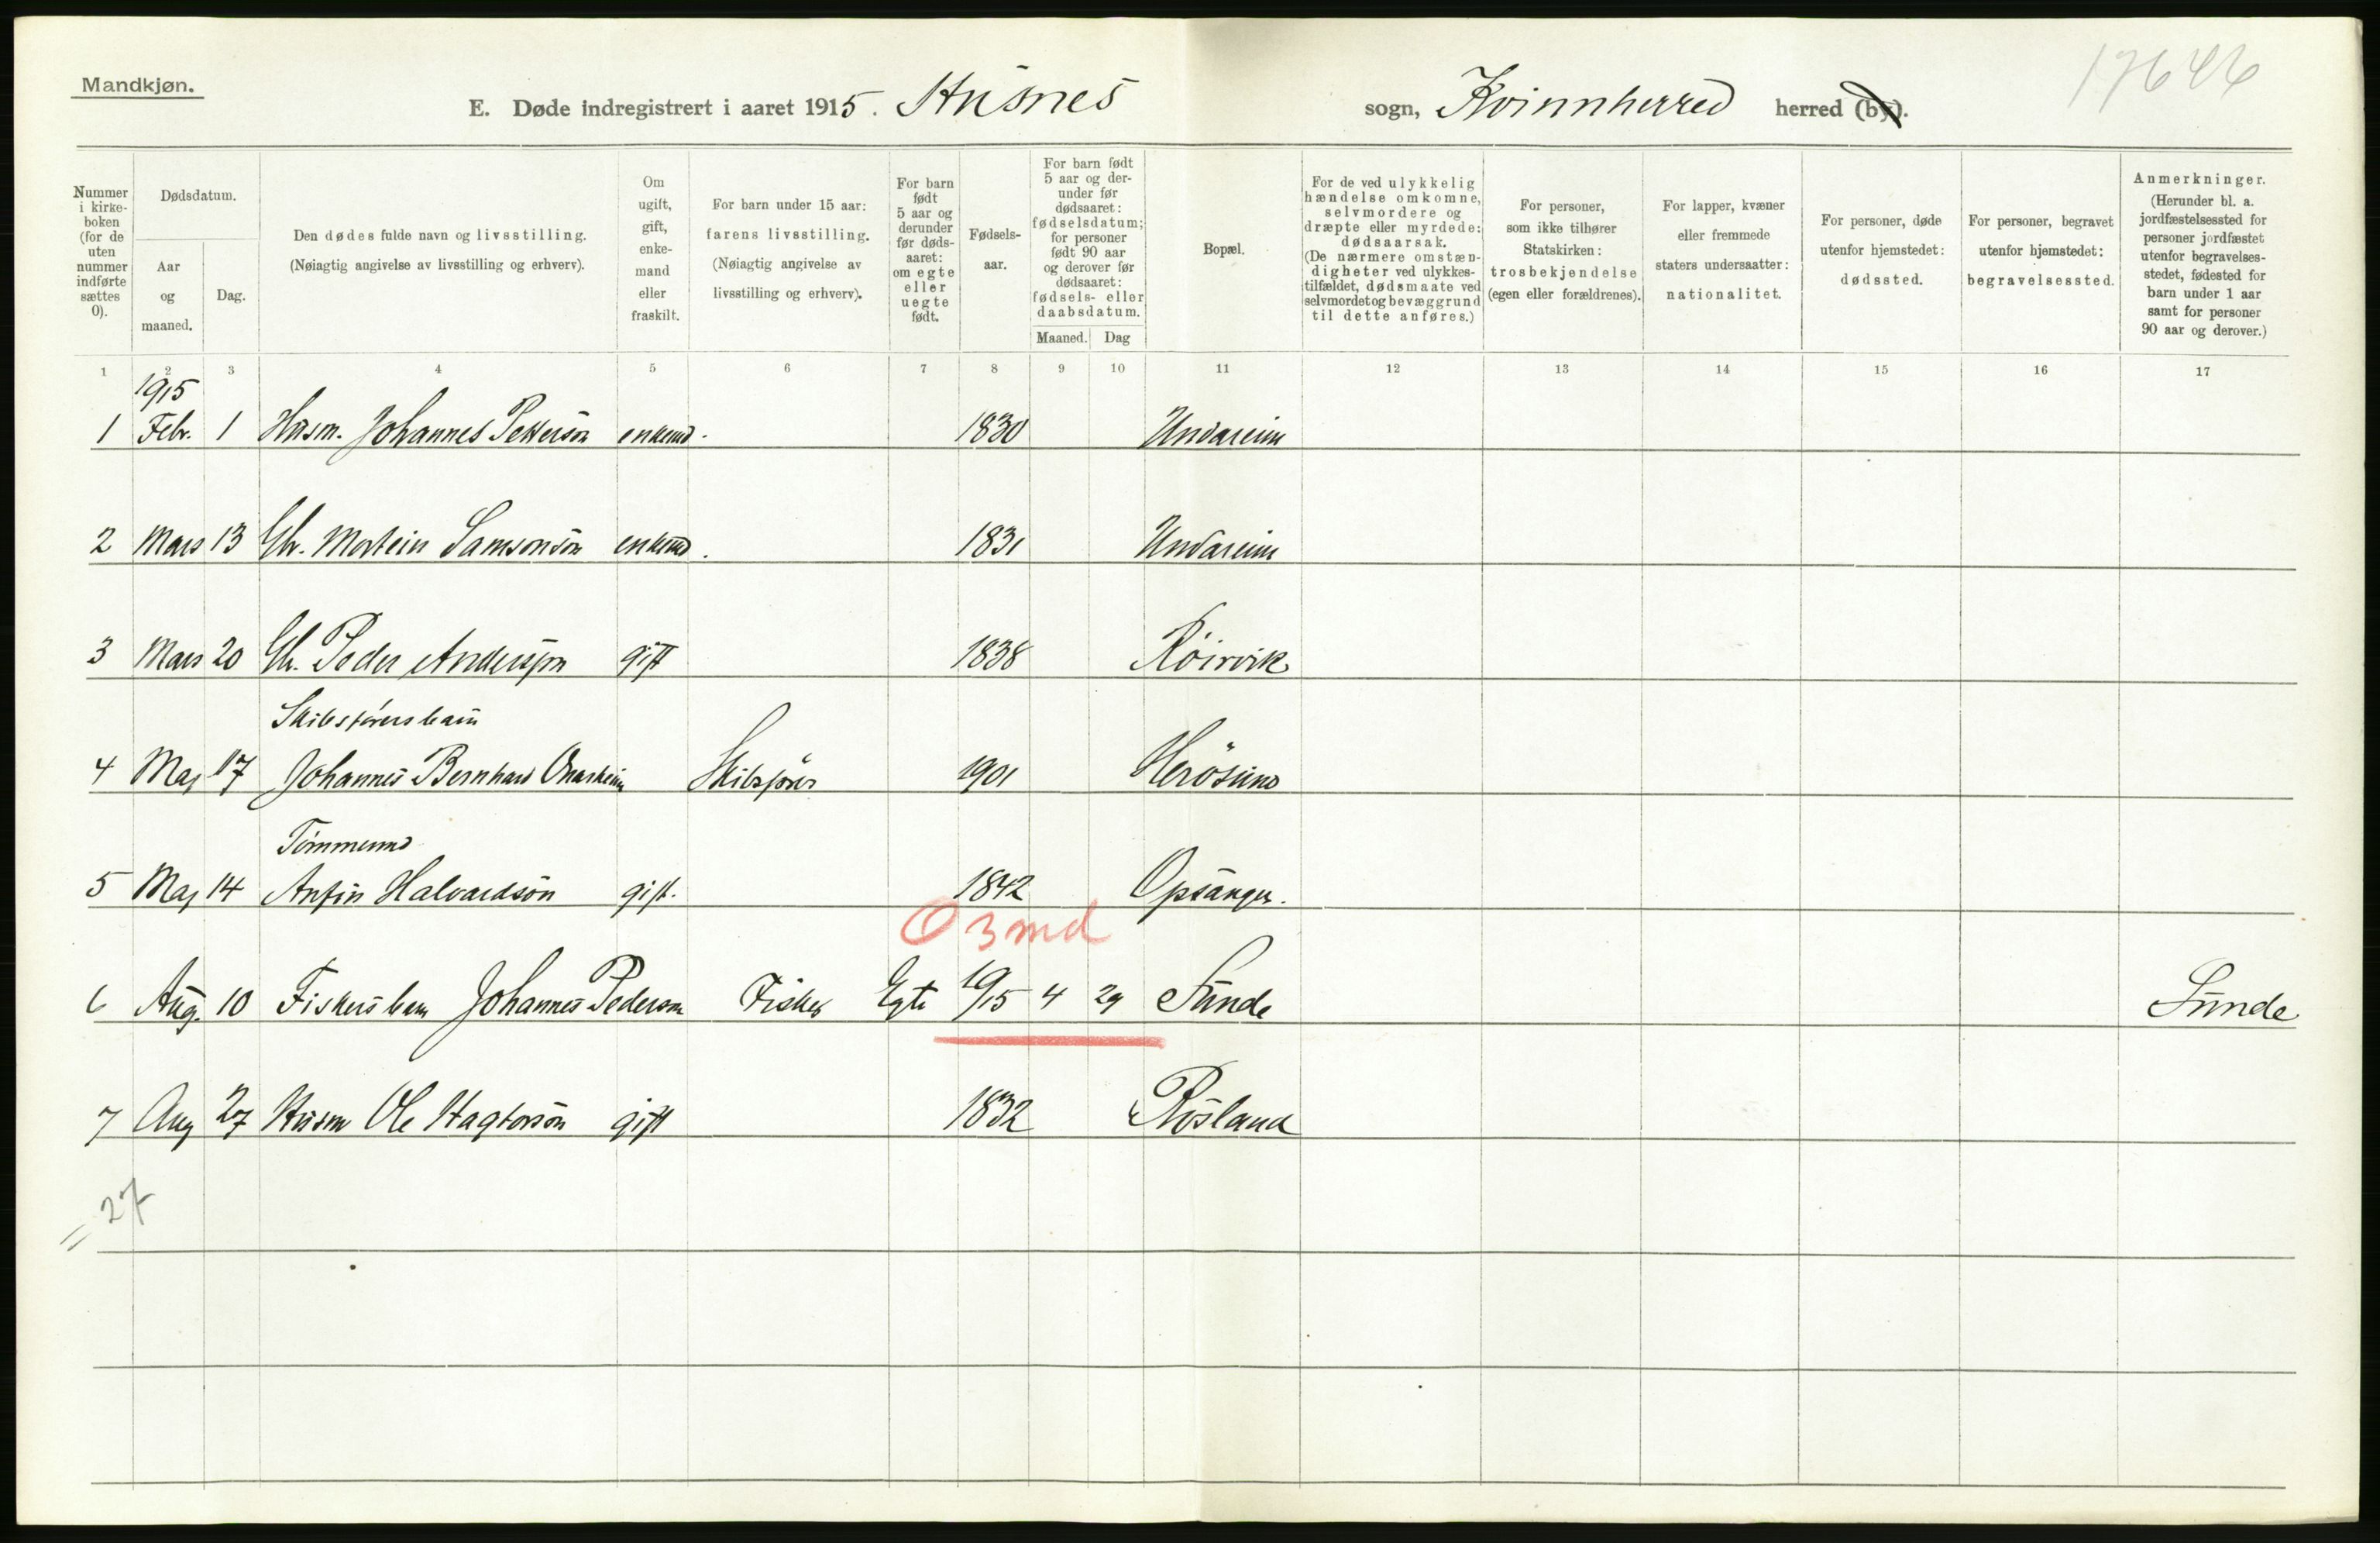 Mandkjøn.
17646
E. Døde indregistrert i aaret 1915. Husnes sogn, Kvinnherred herred (by).
Nummer i kirkeboken (for de uten nummer indførte sættes 0).
Dødsdatum.
Aar og maaned.
Dag.
Den dødes fulde navn og livsstilling.
(Nøiagtig angivelse av livsstilling og erhverv).
Om ugift, gift, enkemand eller fraskilt.
For barn under 15 aar: farens livsstilling.
(Nøiagtig angivelse av livsstilling og erhverv).
For barn født 5 aar og derunder før dødsaaret: om egte eller uegte født.
Fødselsaar.
For barn født 5 aar og derunder før dødsaaret: fødselsdatum; for personer født 90 aar og derover før dødsaaret: fødsels- eller daabsdatum.
Maaned. Dag
Bopæl.
For de ved ulykkelig hændelse omkomne, selvmordere og dræpte eller myrdede: dødsaarsak.
(De nærmere omstændigheter ved ulykkestilfældet, dødsmaate ved selvmordet og bevæggrund til dette anføres.)
For personer, som ikke tilhører Statskirken: trosbekjendelse (egen eller forældrenes).
For lapper, kvæner eller fremmede staters undersaatter: nationalitet.
For personer, døde utenfor hjemstedet: dødssted.
For personer, begravet utenfor hjemstedet: begravelsessted.
Anmerkninger.
(Herunder bl. a. jordfæstelsessted for personer jordfæstet utenfor begravelsesstedet, fødested for barn under 1 aar samt for personer 90 aar og derover.)
1 2 3 4 5 6 7 8 9 10 11 12 13 14 15 16 17
1915
1 Febr. 1 Husm. Johannes Petterson enkemd. 1830 Undareim
2 Mars 13 Gbr. Mortein Samsonsön enkemd. 1831 Undareim
3 Mars 20 Gbr. Peder Anderssøn gift 1838 Röirvik
Skibsførersbarn
4 Maj 17 Johannes Bernhard Onarheim Skibsfører 1901 Herösund
Tömmermd
5 Maj 14 Anfin Halvardsön gift. 1842 Opsanger.
0 3 md
6 Aug. 10 Fiskers barn Johannes Pederson Fisker Egte 1915 4 29 Sunde Sunde
7 Aug 27 Husm Ole Hagtorsön gift 1832 Røsland
= 27